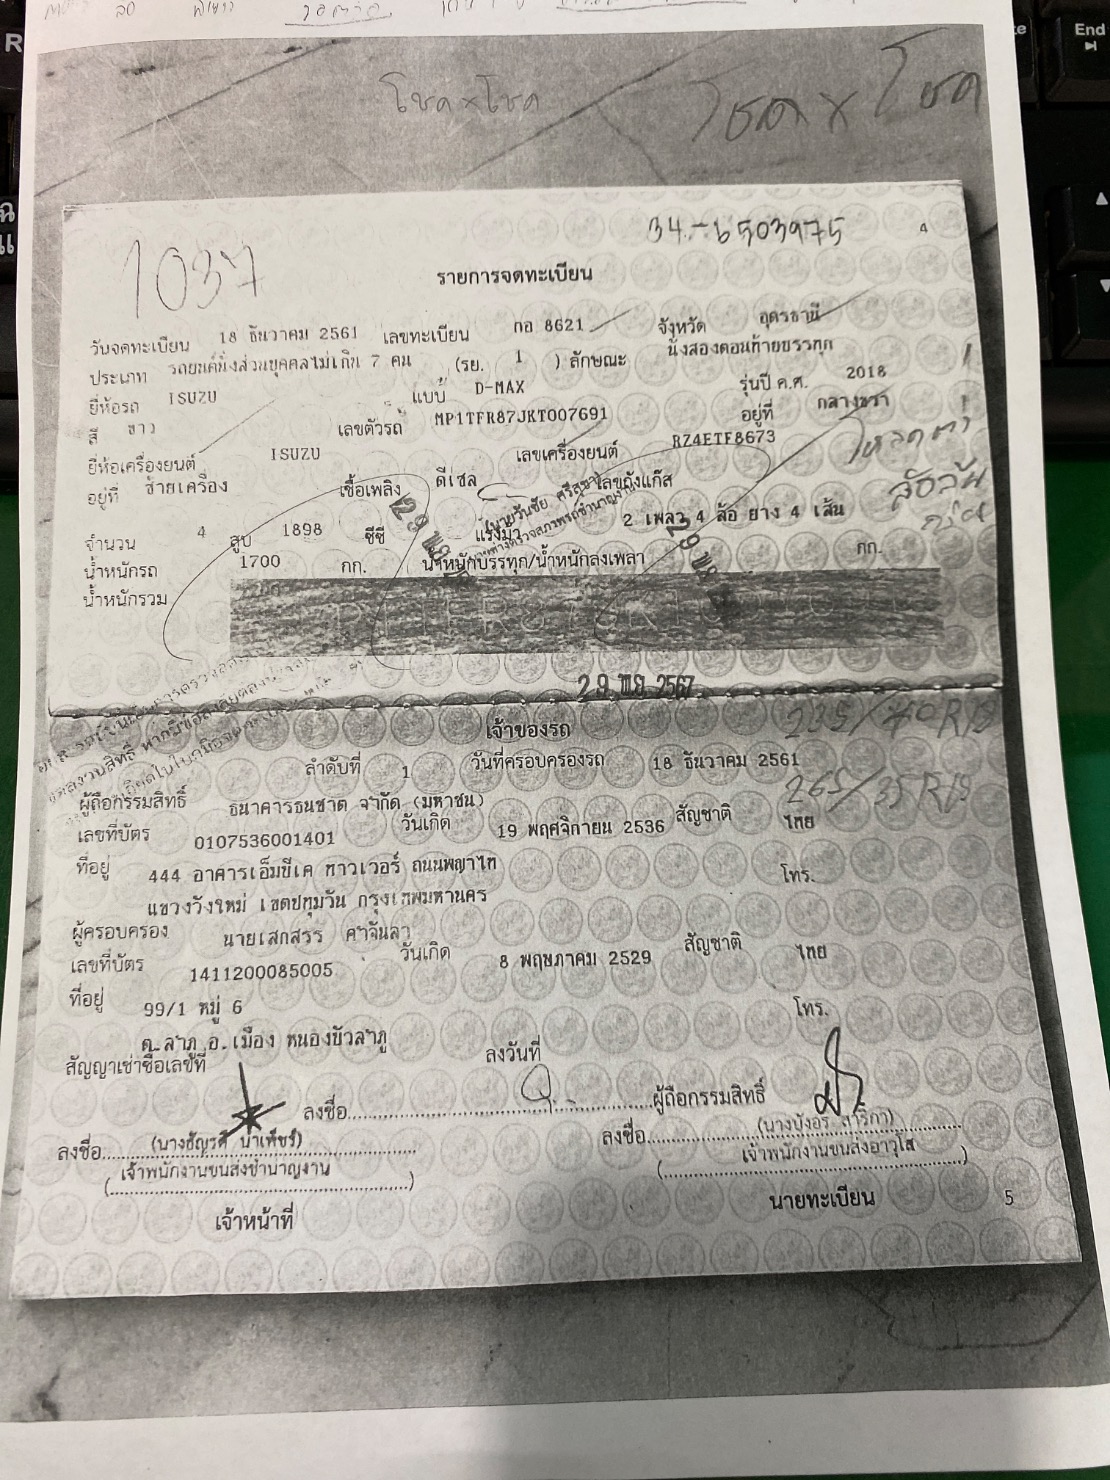 โชค x โชค
โชค x โชค
34-6503975
4
1037
รายการจดทะเบียน
วันจดทะเบียน 18 ธันวาคม 2561 เลขทะเบียน กอ 8621 จังหวัด อุดรธานี
ประเภท รถยนต์นั่งส่วนบุคคลไม่เกิน 7 คน (รย. 1 ) ลักษณะ นั่งสองตอนท้ายบรรทุก
ยี่ห้อรถ ISUZU แบบ D-MAX รุ่นปี ค.ศ. 2018
สี ขาว เลขตัวรถ MP1TFR87JKT007691 อยู่ที่ กลางขวา
ยี่ห้อเครื่องยนต์ ISUZU เลขเครื่องยนต์ RZ4ETF8673
อยู่ที่ ซ้ายเครื่อง เชื้อเพลิง ดีเซล เลขถังแก๊ส
จำนวน 4 สูบ 1898 ซีซี แรงม้า 2 เพลา 4 ล้อ ยาง 4 เส้น
น้ำหนักรถ 1700 กก. น้ำหนักบรรทุก/น้ำหนักลงเพลา กก.
น้ำหนักรวม
29 พ.ย. 2567
เจ้าของรถ
ลำดับที่ 1 วันที่ครอบครองรถ 18 ธันวาคม 2561
265/35 R19
ผู้ถือกรรมสิทธิ์ ธนาคารธนชาต จำกัด (มหาชน)
เลขที่บัตร 0107536001401 วันเกิด 19 พฤศจิกายน 2536 สัญชาติ ไทย
ที่อยู่ 444 อาคารเอ็มบีเค ทาวเวอร์ ถนนพญาไท โทร.
แขวงวังใหม่ เขตปทุมวัน กรุงเทพมหานคร
ผู้ครอบครอง นายเสกสรร
เลขที่บัตร 1411200085005 วันเกิด 8 พฤษภาคม 2529 สัญชาติ ไทย
ที่อยู่ 99/1 หมู่ 6 โทร.
ต.ลำภู อ.เมือง หนองบัวลำภู
สัญญาเช่าซื้อเลขที่ ลงวันที่
ลงชื่อ ผู้ถือกรรมสิทธิ์
ลงชื่อ ลงชื่อ
เจ้าพนักงานขนส่งชำนาญงาน เจ้าพนักงานขนส่งอาวุโส
เจ้าหน้าที่ นายทะเบียน 5